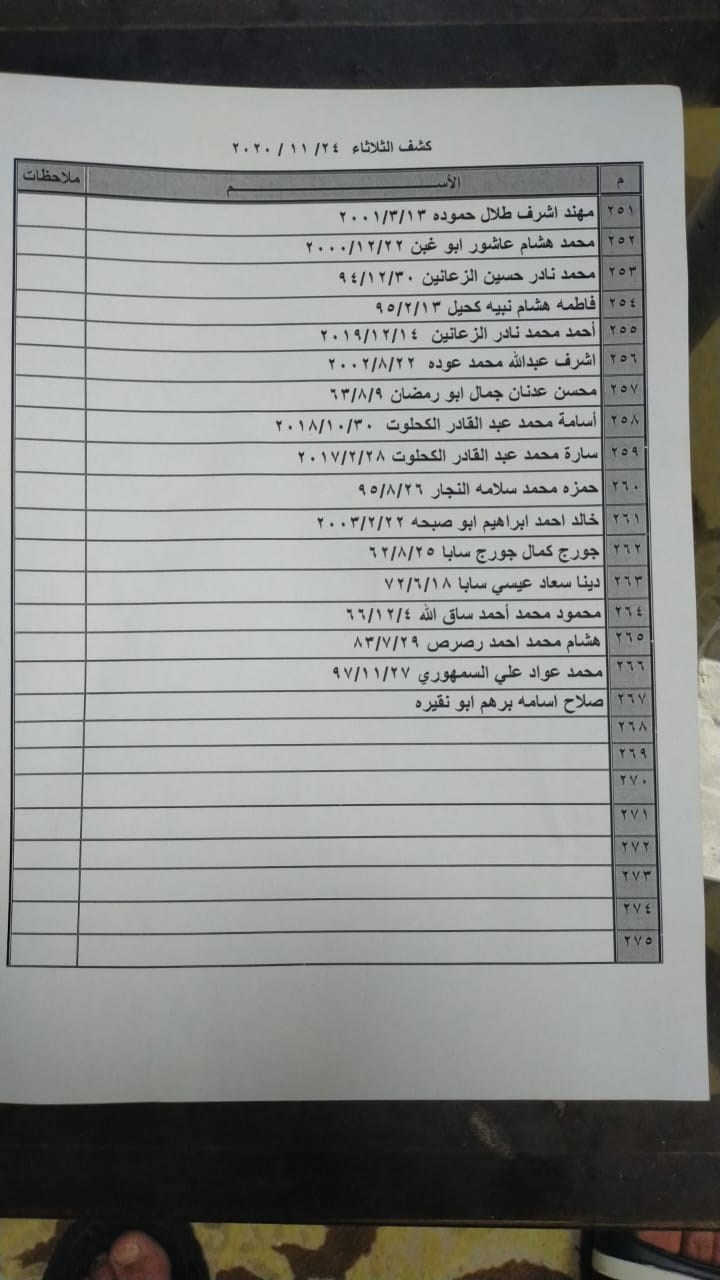 كشف الثلاثاء ٢٤/ ١١ / ٢٠٢٠
م الأســـــــــــم ملاحظات
٢٥١ مهند اشرف طلال حموده ٢٠٠١/٣/١٣
٢٥٢ محمد هشام عاشور ابو غبن ٢٠٠٠/١٢/٢٢
٢٥٣ محمد نادر حسين الزعانين ٩٤/١٢/٣٠
٢٥٤ فاطمه هشام نبيه كحيل ٩٥/٢/١٣
٢٥٥ أحمد محمد نادر الزعانين ٢٠١٩/١٢/١٤
٢٥٦ اشرف عبدالله محمد عوده ٢٠٠٢/٨/٢٢
٢٥٧ محسن عدنان جمال ابو رمضان ٦٣/٨/٩
٢٥٨ أسامة محمد عبد القادر الكحلوت ٢٠١٨/١٠/٣٠
٢٥٩ سارة محمد عبد القادر الكحلوت ٢٠١٧/٢/٢٨
٢٦٠ حمزه محمد سلامه النجار ٩٥/٨/٢٦
٢٦١ خالد احمد ابراهيم ابو صبحه ٢٠٠٣/٢/٢٢
٢٦٢ جورج كمال جورج سابا ٦٢/٨/٢٥
٢٦٣ دينا سعاد عيسي سابا ٧٢/٦/١٨
٢٦٤ محمود محمد أحمد ساق الله ٦٦/١٢/٤
٢٦٥ هشام محمد احمد رصرص ٨٣/٧/٢٩
٢٦٦ محمد عواد علي السمهوري ٩٧/١١/٢٧
٢٦٧ صلاح اسامه برهم ابو نقيره
٢٦٨
٢٦٩
٢٧٠
٢٧١
٢٧٢
٢٧٣
٢٧٤
٢٧٥